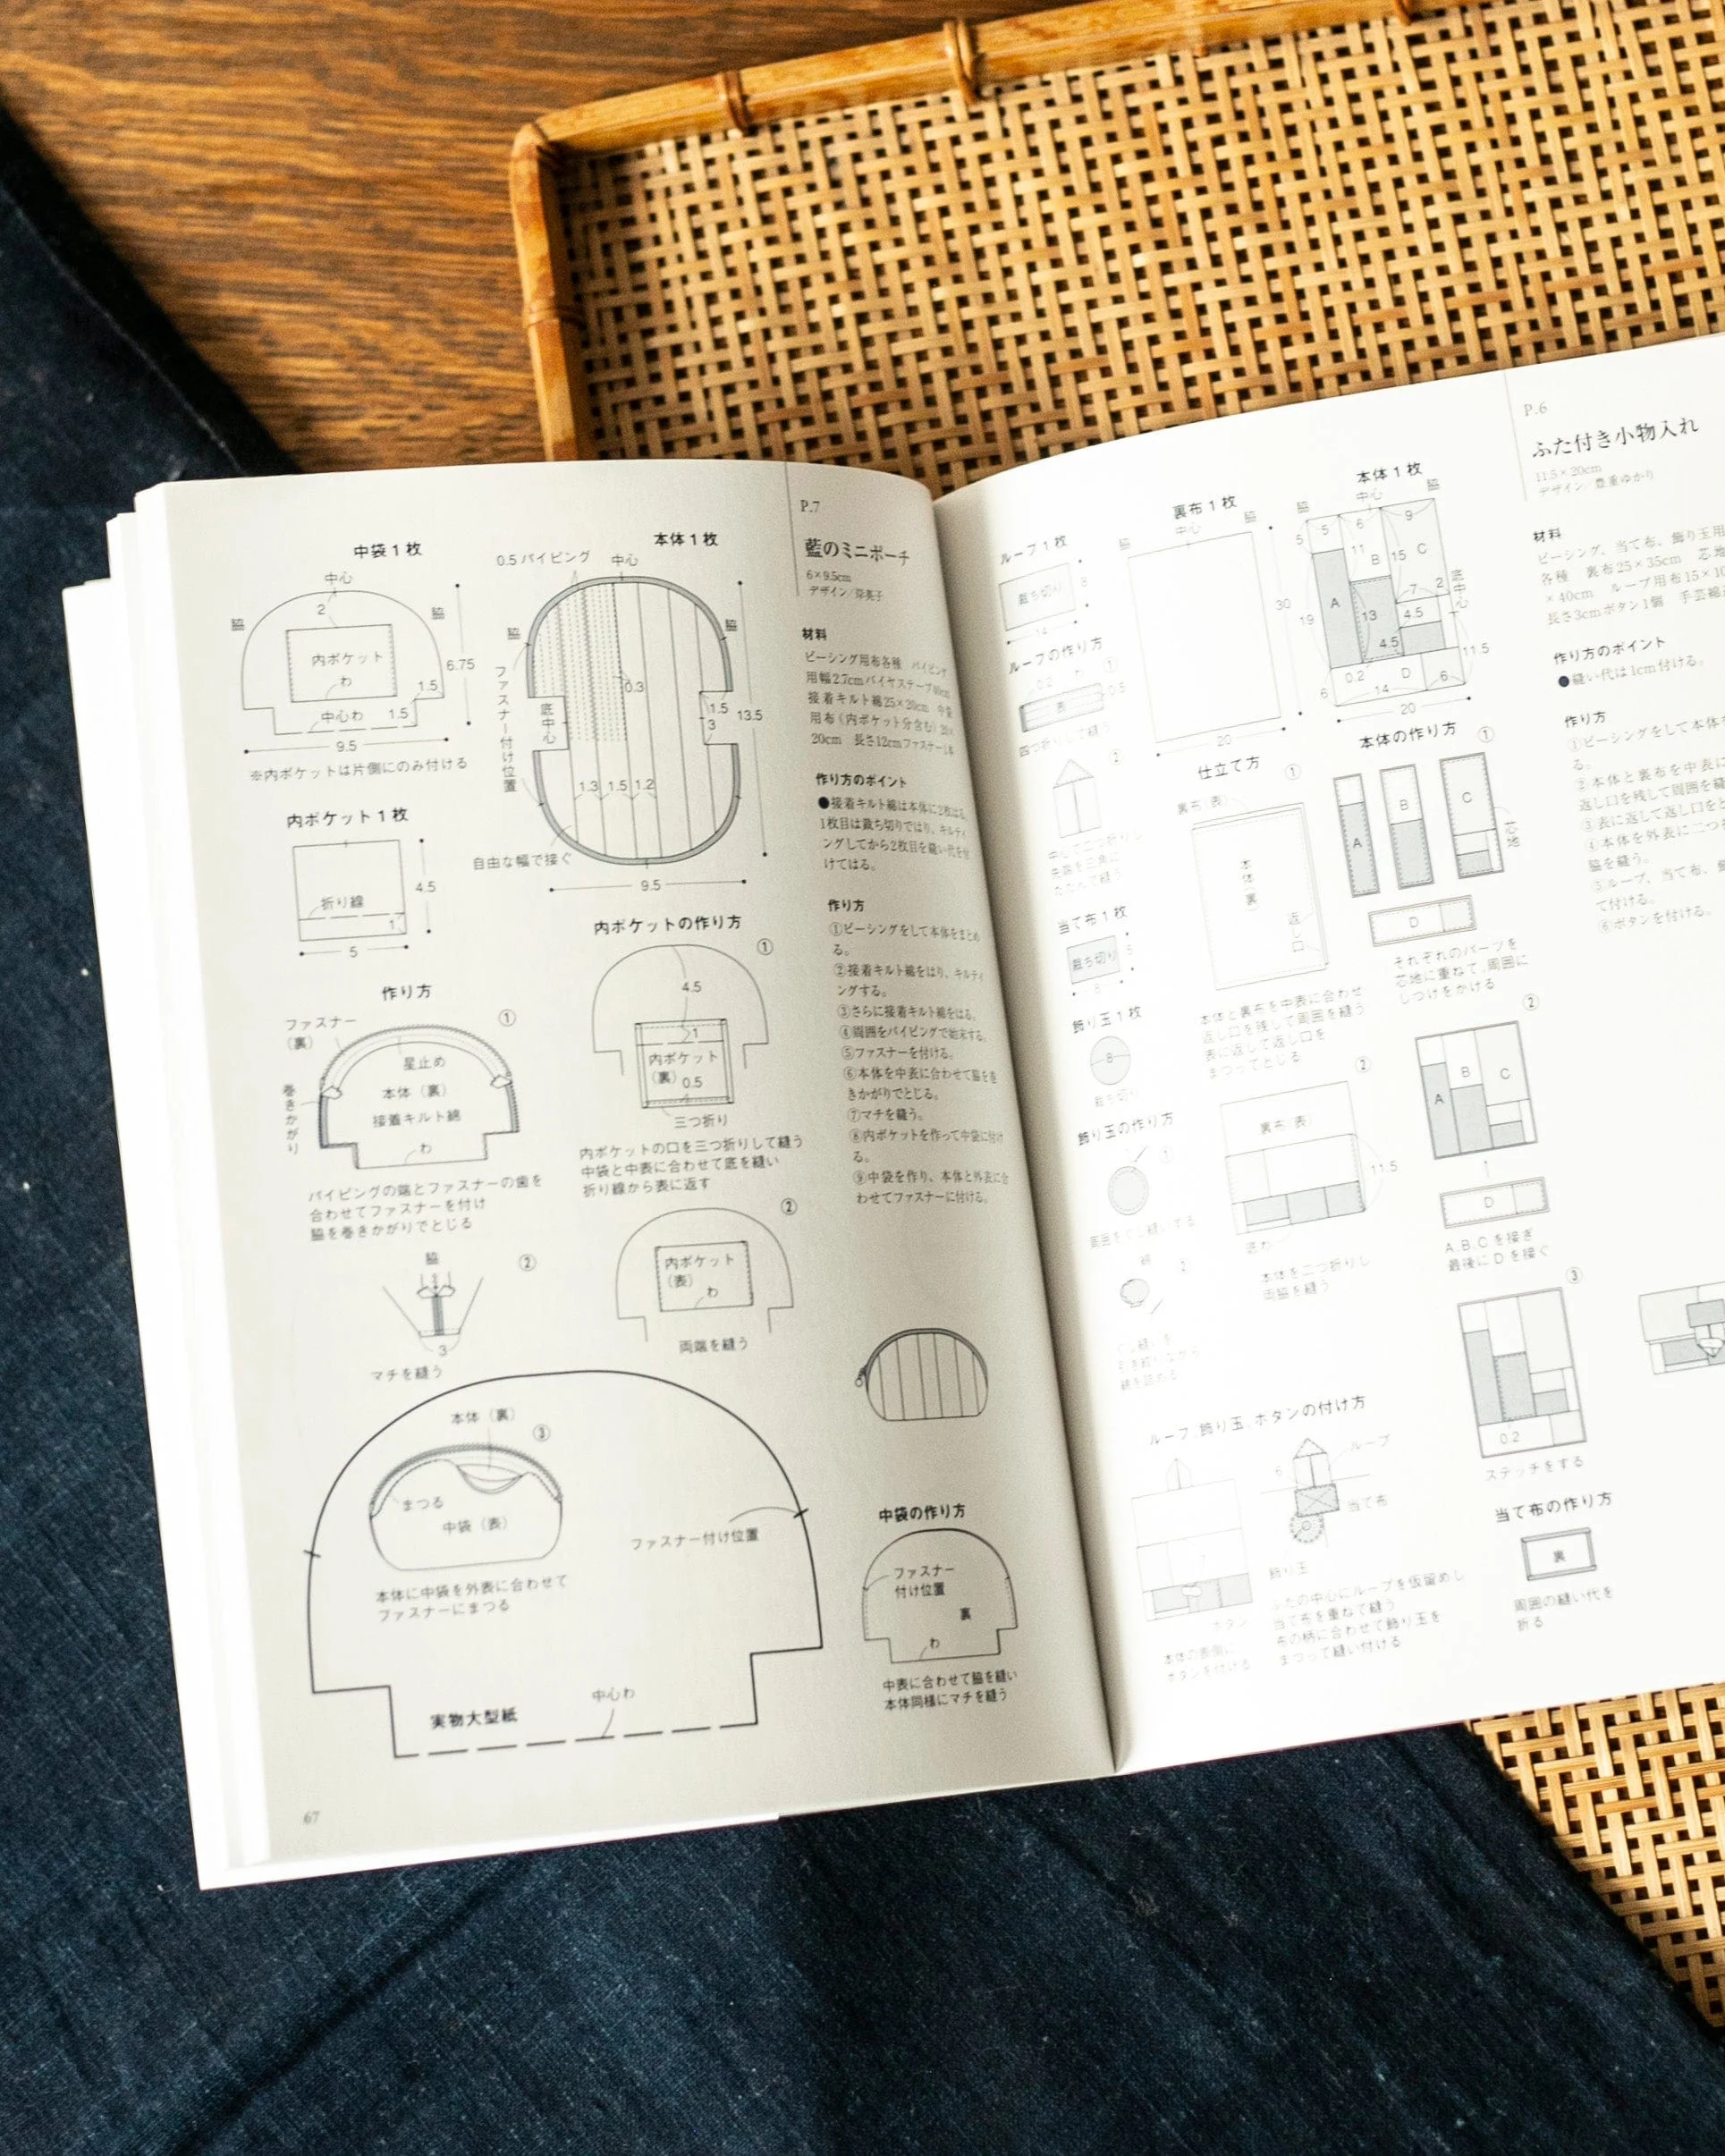 P.7
藍のミニポーチ
6×9.5cm
材料
ピーシング用布各種 パイピング
用幅2.7cmバイヤステープ
接着キルト綿25×20cm 中袋
用布(内ポケット分含む)
20cm 長さ12cmファスナー1本
作り方のポイント
●接着キルト綿は本体に2枚はる。
1枚目は裁ち切りではり、キルティ
ングしてから2枚目を縫い代を付
けてはる。
作り方
①ピーシングをして本体をまとめ
る。
②接着キルト綿をはり、キルティ
ングする。
③さらに接着キルト綿をはる。
④周囲をパイピングで始末する。
⑤ファスナーを付ける。
⑥本体を中表に合わせて脇を巻
きかがりでとじる。
⑦マチを縫う。
⑧内ポケットを作って中袋に付け
る。
⑨中袋を作り、本体と外表に合
わせてファスナーに付ける。
中袋1枚
中心
脇
2
脇
内ポケット
わ
6.75
1.5
中心わ
1.5
9.5
※内ポケットは片側にのみ付ける
本体1枚
0.5パイピング
中心
脇
脇
ファスナー付け位置
底中心
0.3
1.5
3
13.5
1.3
1.5
1.2
自由な幅で接ぐ
9.5
内ポケット1枚
折り線
1
4.5
5
内ポケットの作り方
①
4.5
1
内ポケット
(裏)
0.5
三つ折り
内ポケットの口を三つ折りして縫う
中袋と中表に合わせて底を縫い
折り線から表に返す
②
内ポケット
(表)
わ
両端を縫う
作り方
①
ファスナー
(裏)
星止め
本体(裏)
接着キルト綿
巻きかがり
わ
パイピングの端とファスナーの歯を
合わせてファスナーを付け
脇を巻きかがりでとじる
②
脇
3
マチを縫う
③
本体(裏)
まつる
中袋(表)
本体に中袋を外表に合わせて
ファスナーにまつる
ファスナー付け位置
中心わ
実物大型紙
中袋の作り方
ファスナー
付け位置
裏
わ
中表に合わせて脇を縫い
本体同様にマチを縫う
67
P.6
ふた付き小物入れ
11.5×20cm
デザイン/豊重ゆかり
材料
ピーシング、当て布、飾り玉用
各種 裏布25×35cm 芯地
×40cm ループ用布15×10
長さ3cmボタン1個 手芸綿
作り方のポイント
●縫い代は1cm付ける。
作り方
①ピーシングをして本体
る。
②本体と裏布を中表に
返し口を残して周囲を縫
③表に返して返し口を
④本体を外表に二つ
脇を縫う。
⑤ループ、当て布、
て付ける。
⑥ボタンを付ける。
ループ1枚
裁ち切り
8
14
ループの作り方
①
0.2
わ
0.5
表
四つ折りして縫う
②
当て布1枚
裁ち切り
5
8
飾り玉1枚
8
裁ち切り
飾り玉の作り方
①
周囲をぐし縫いする
2
裏布1枚
中心
脇
脇
30
20
本体1枚
中心
脇
脇
5
6
9
5
11
B
15
C
A
13
7
2
4.5
4.5
底中心
19
11.5
0.2
D
6
14
6
20
仕立て方
①
裏布(表)
本体(裏)
返し口
本体と裏布を中表に合わせ
返し口を残して周囲を縫う
表に返して返し口を
まつってとじる
②
裏布(表)
11.5
底わ
本体を二つ折りし
両脇を縫う
本体の作り方
①
A
B
C
芯地
D
それぞれのパーツを
芯地に重ねて、周囲に
しつけをかける
②
A
B
C
D
A、B、Cを接ぎ
最後にDを接ぐ
③
0.2
ステッチをする
ループ、飾り玉、ボタンの付け方
ループ
6
当て布
飾り玉
ボタン
本体の表側に
ボタンを付ける
ふたの中心にループを仮留めし
当て布を重ねて縫う
布の柄に合わせて飾り玉を
まつって縫い付ける
当て布の作り方
裏
周囲の縫い代を
折る